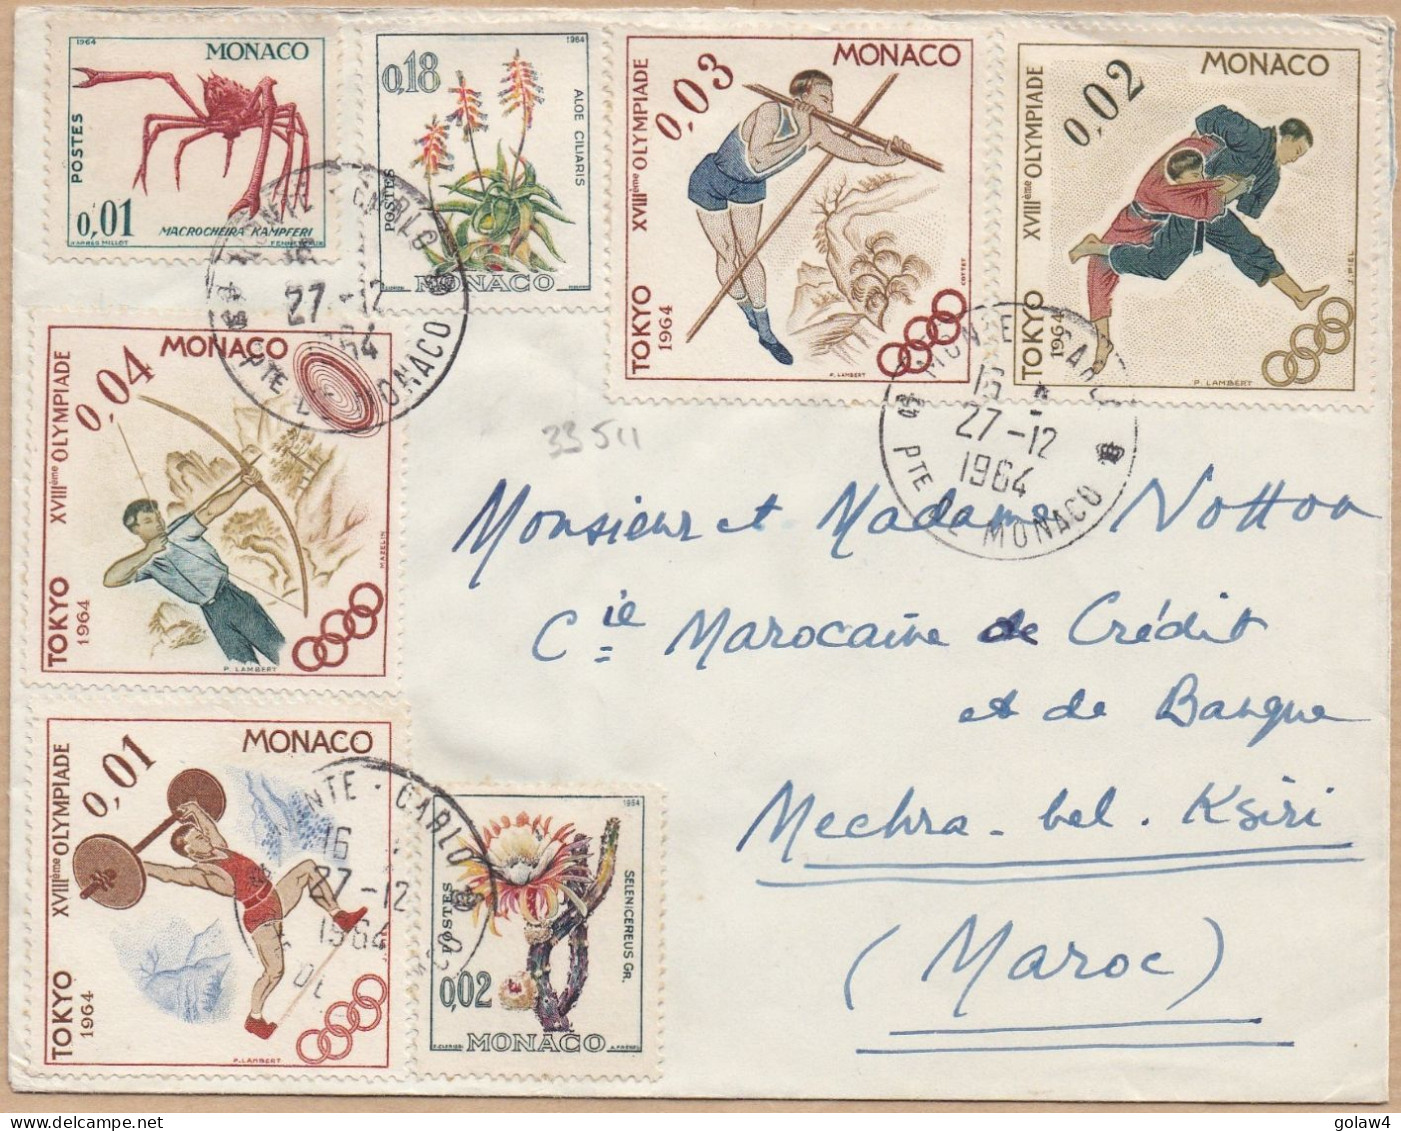 1964
MONACO
POSTES
0,01
MACROCHEIRA KÄMPFERI
0,18
1964
ALOE CILIARIS
POSTES
MONACO
0,03
MONACO
XVIIIème OLYMPIADE
TOKYO
1964
COTTET
P. LAMBERT
0,02
MONACO
XVIIIème OLYMPIADE
TOKYO
1964
J. PIEL
P. LAMBERT
MONTE - CARLO
27 - 12
1964
PTE DE MONACO
MONTE - CARLO
16
27 - 12
1964
PTE DE MONACO
0,04
MONACO
XVIIIème OLYMPIADE
TOKYO
1964
MAZELIN
P. LAMBERT
33 511
Monsieur et Madame Notton
Cie Marocaine de Crédit
et de Banque
Mechra-bel-Ksiri
(Maroc)
0,01
MONACO
XVIIIème OLYMPIADE
TOKYO
1964
P. LAMBERT
MONTE - CARLO
16
27 - 12
1964
1964
SELENICEREUS GR.
POSTES
0,02
MONACO
golaw4